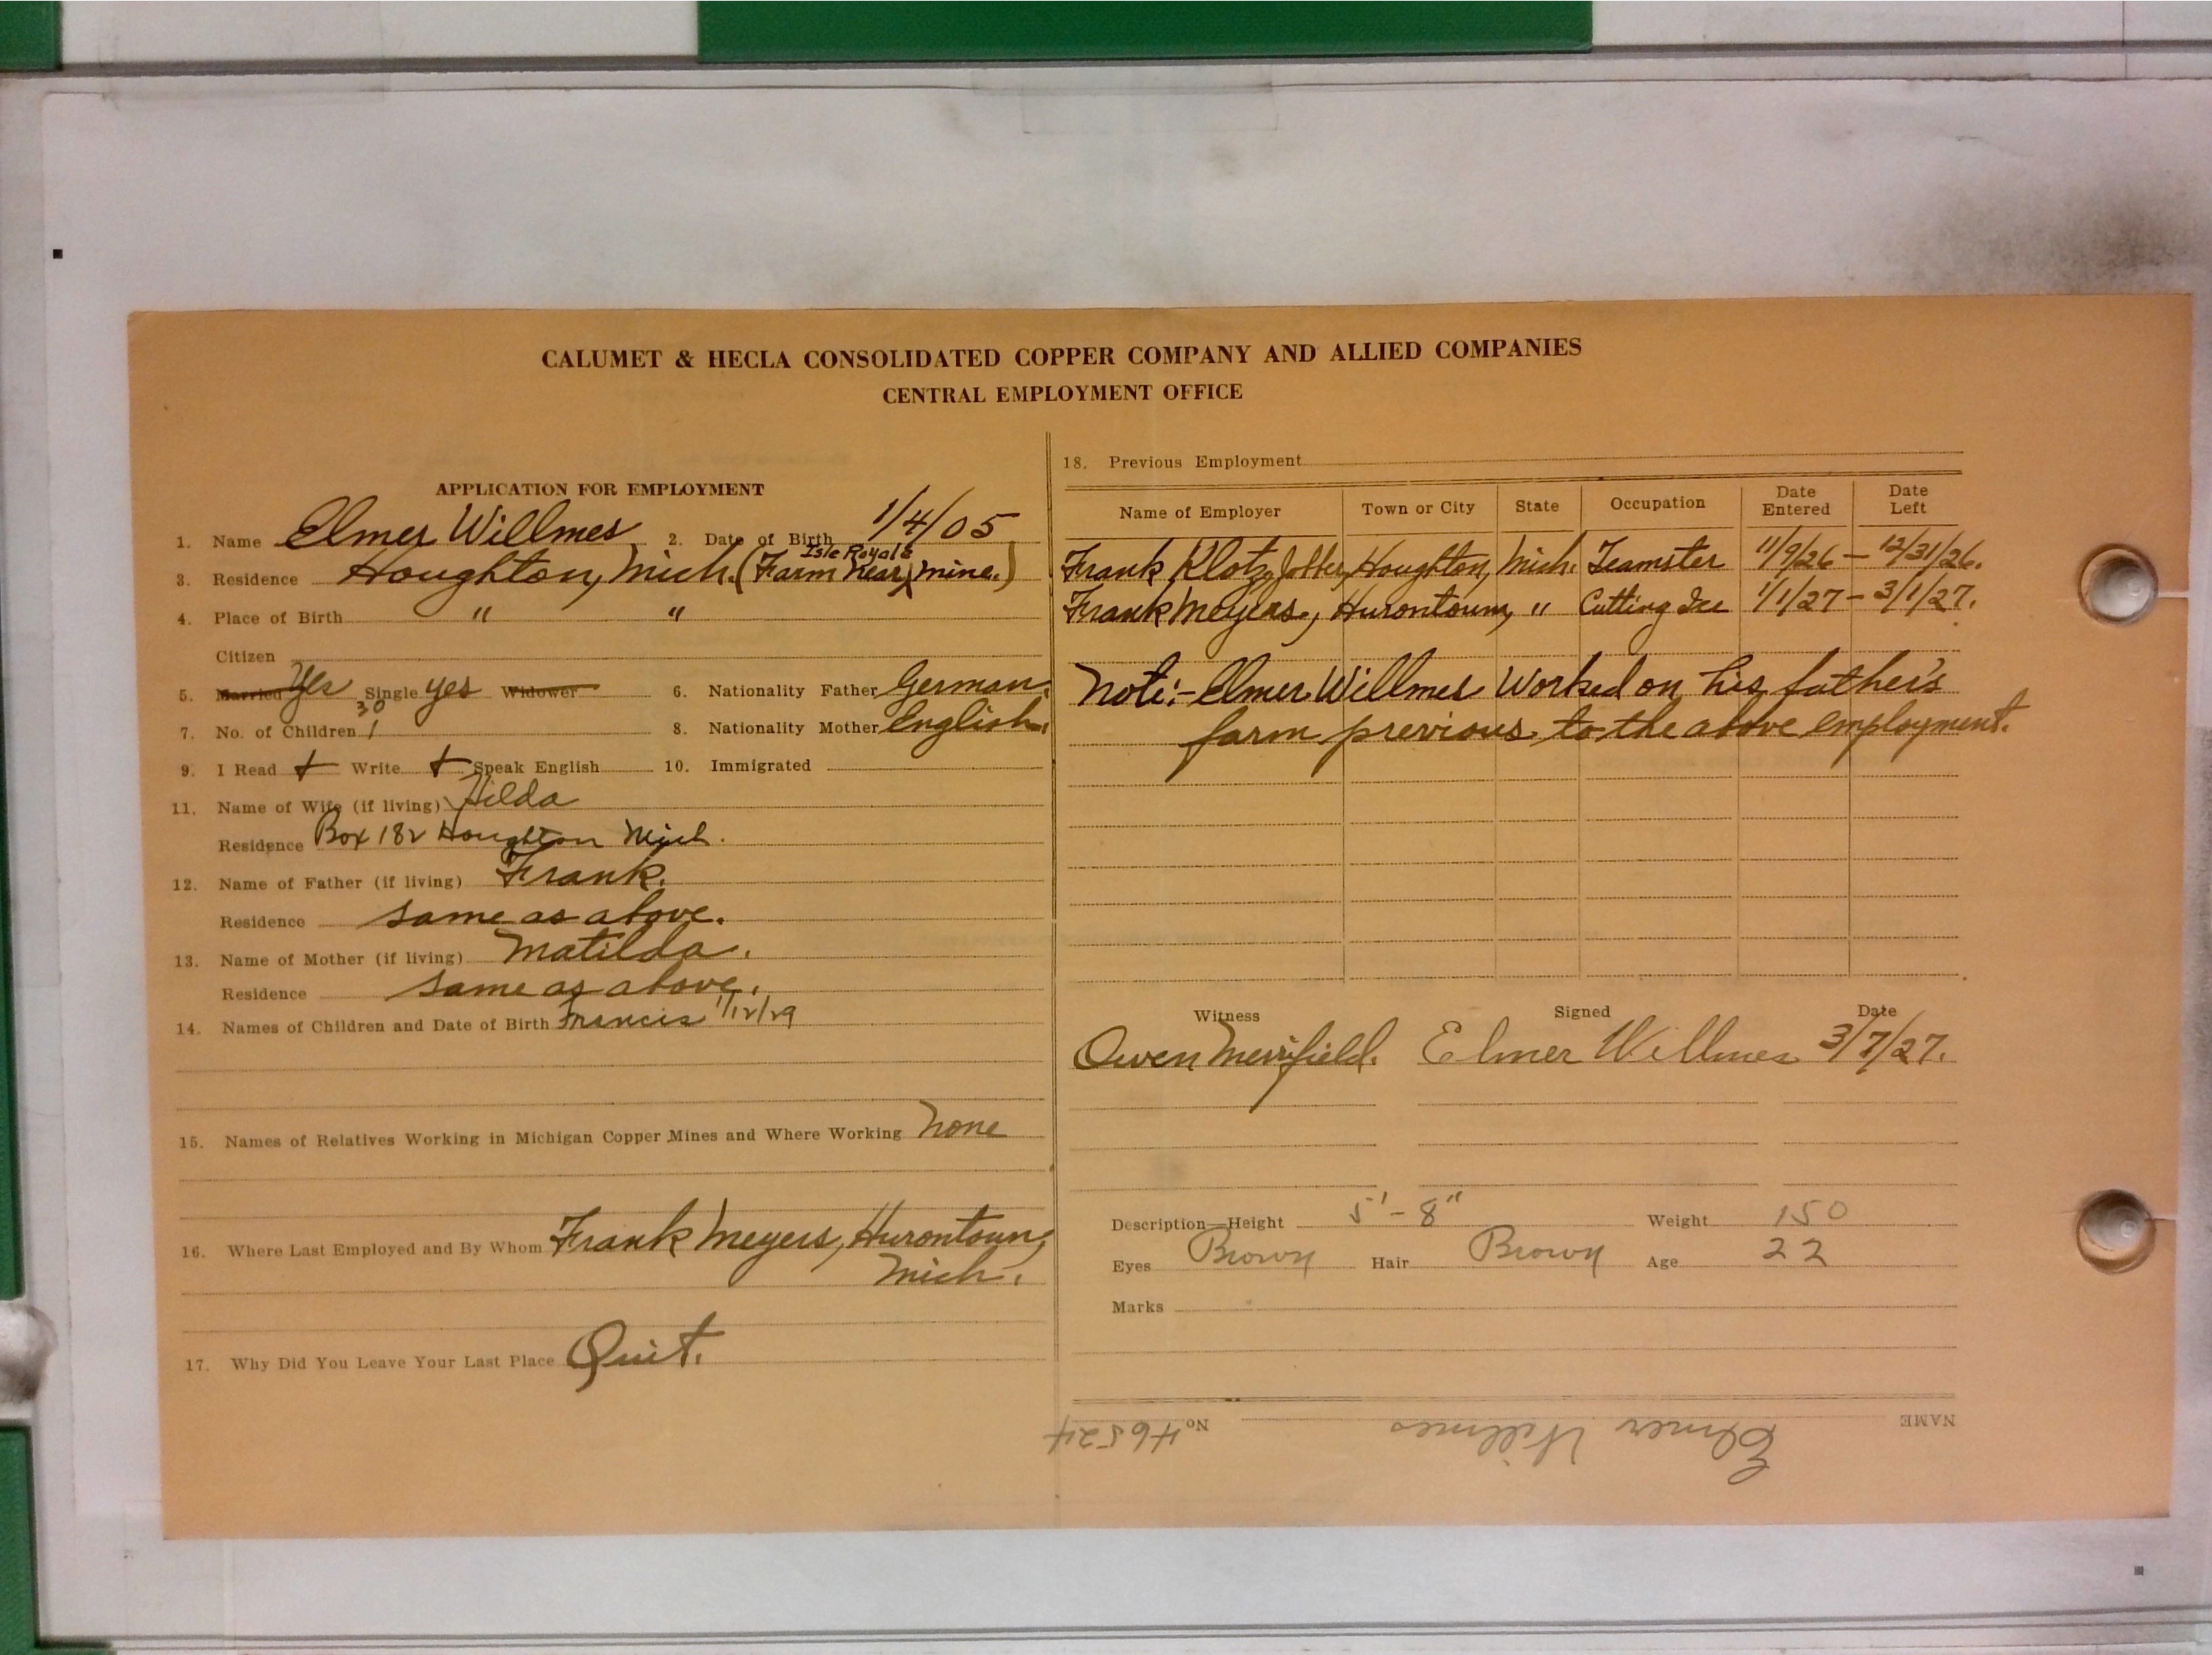 CALUMET & HECLA CONSOLIDATED COPPER COMPANY AND ALLIED COMPANIES
CENTRAL EMPLOYMENT OFFICE
APPLICATION FOR EMPLOYMENT
1. Name Elmer Willmes 2. Date of Birth 1/4/05
Isle Royale
3. Residence Houghton, Mich. (Farm near mine.)
4. Place of Birth " "
Citizen
5. Married Yes Single yes Widower 6. Nationality Father German.
30
7. No. of Children 1 8. Nationality Mother English.
9. I Read + Write + Speak English 10. Immigrated
11. Name of Wife (if living) Hilda
Residence Box 182 Houghton Mich.
12. Name of Father (if living) Frank.
Residence same as above.
13. Name of Mother (if living) Matilda.
Residence same as above.
14. Names of Children and Date of Birth Francis 1/12/29
15. Names of Relatives Working in Michigan Copper Mines and Where Working None
16. Where Last Employed and By Whom Frank Meyers, Hurontown,
Mich.
17. Why Did You Leave Your Last Place Quit.
18. Previous Employment
Name of Employer Town or City State Occupation Date Entered Date Left
Frank Klotz, Houghton, Mich. Teamster 11/9/26 – 12/31/26.
Frank Meyers, Hurontown, " Cutting Ice 1/1/27 – 3/1/27.
Note:- Elmer Willmes worked on his father's
farm previous to the above employment.
Witness Signed Date
Owen Merrifield. Elmer Willmes 3/7/27.
Description—Height 5'-8" Weight 150
Eyes Brown Hair Brown Age 22
Marks
NAME Elmer Willmes No. 46524